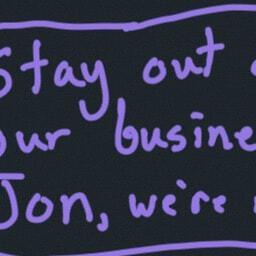 Stay out
our busine
Jon, we're